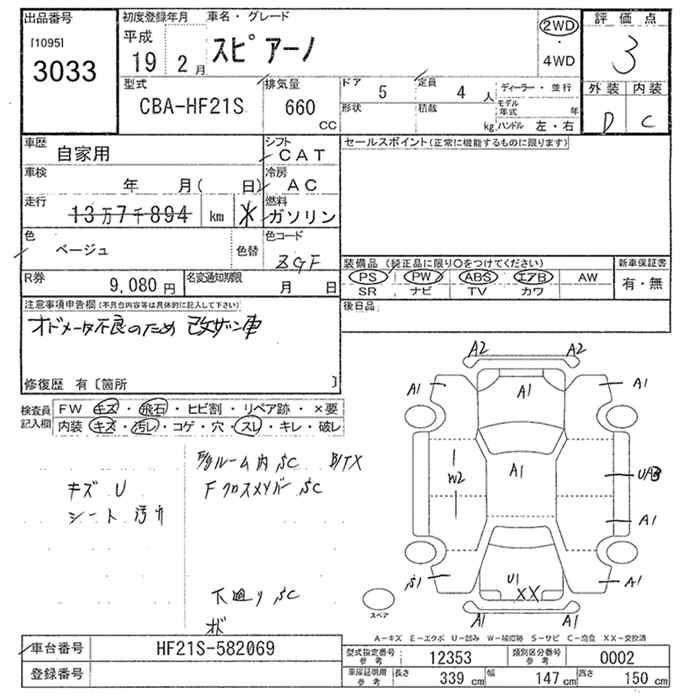 出品番号 初度登録年月 車名・グレード 2WD 評価点
[1095] 平成 ・ 3
3033 19 2月 スピアーノ 4WD
型式 排気量 ドア 5 定員 4人 ディーラー・並行 外装 内装
CBA-HF21S 660 CC 形状 積載 kg モデル年式 年 ハンドル 左・右 D C
車歴 自家用 シフト CAT セールスポイント(正常に機能するものに限ります)
車検 年 月( 日) 冷房 AC
走行 13万7千894 km * 燃料 ガソリン
色 ベージュ 色替 色コード ZGF
装備品 (純正品に限り○をつけてください) 新車保証書
R券 9,080円 名変通知期限 月 日 PS PW ABS エアB AW 有・無
SR ナビ TV カワ
注意事項申告欄(不具合内容等は具体的に記入して下さい) 後日品
オドメータ不良のため 改ザン車
修復歴 有〔箇所 〕
検査員記入欄 FW キズ・飛石・ヒビ割・リペア跡・×要
内装 キズ・汚レ・コゲ・穴・スレ・キレ・破レ
ルーム内 SC
キズ U FクロスメンバーSC
シート 汚れ
下廻り SC
A2 A2
A1 A1 A1
W2 A1 UA3
A1
S1 U1 XX A1
A1 A1
スペア
A-キズ E-エクボ U-凹み W-補修跡 S-サビ C-腐食 XX-交換済
車台番号 HF21S-582069 型式指定番号 参考 12353 類別区分番号 参考 0002
登録番号 車庫証明用 参考 長さ 339 cm 幅 147 cm 高さ 150 cm